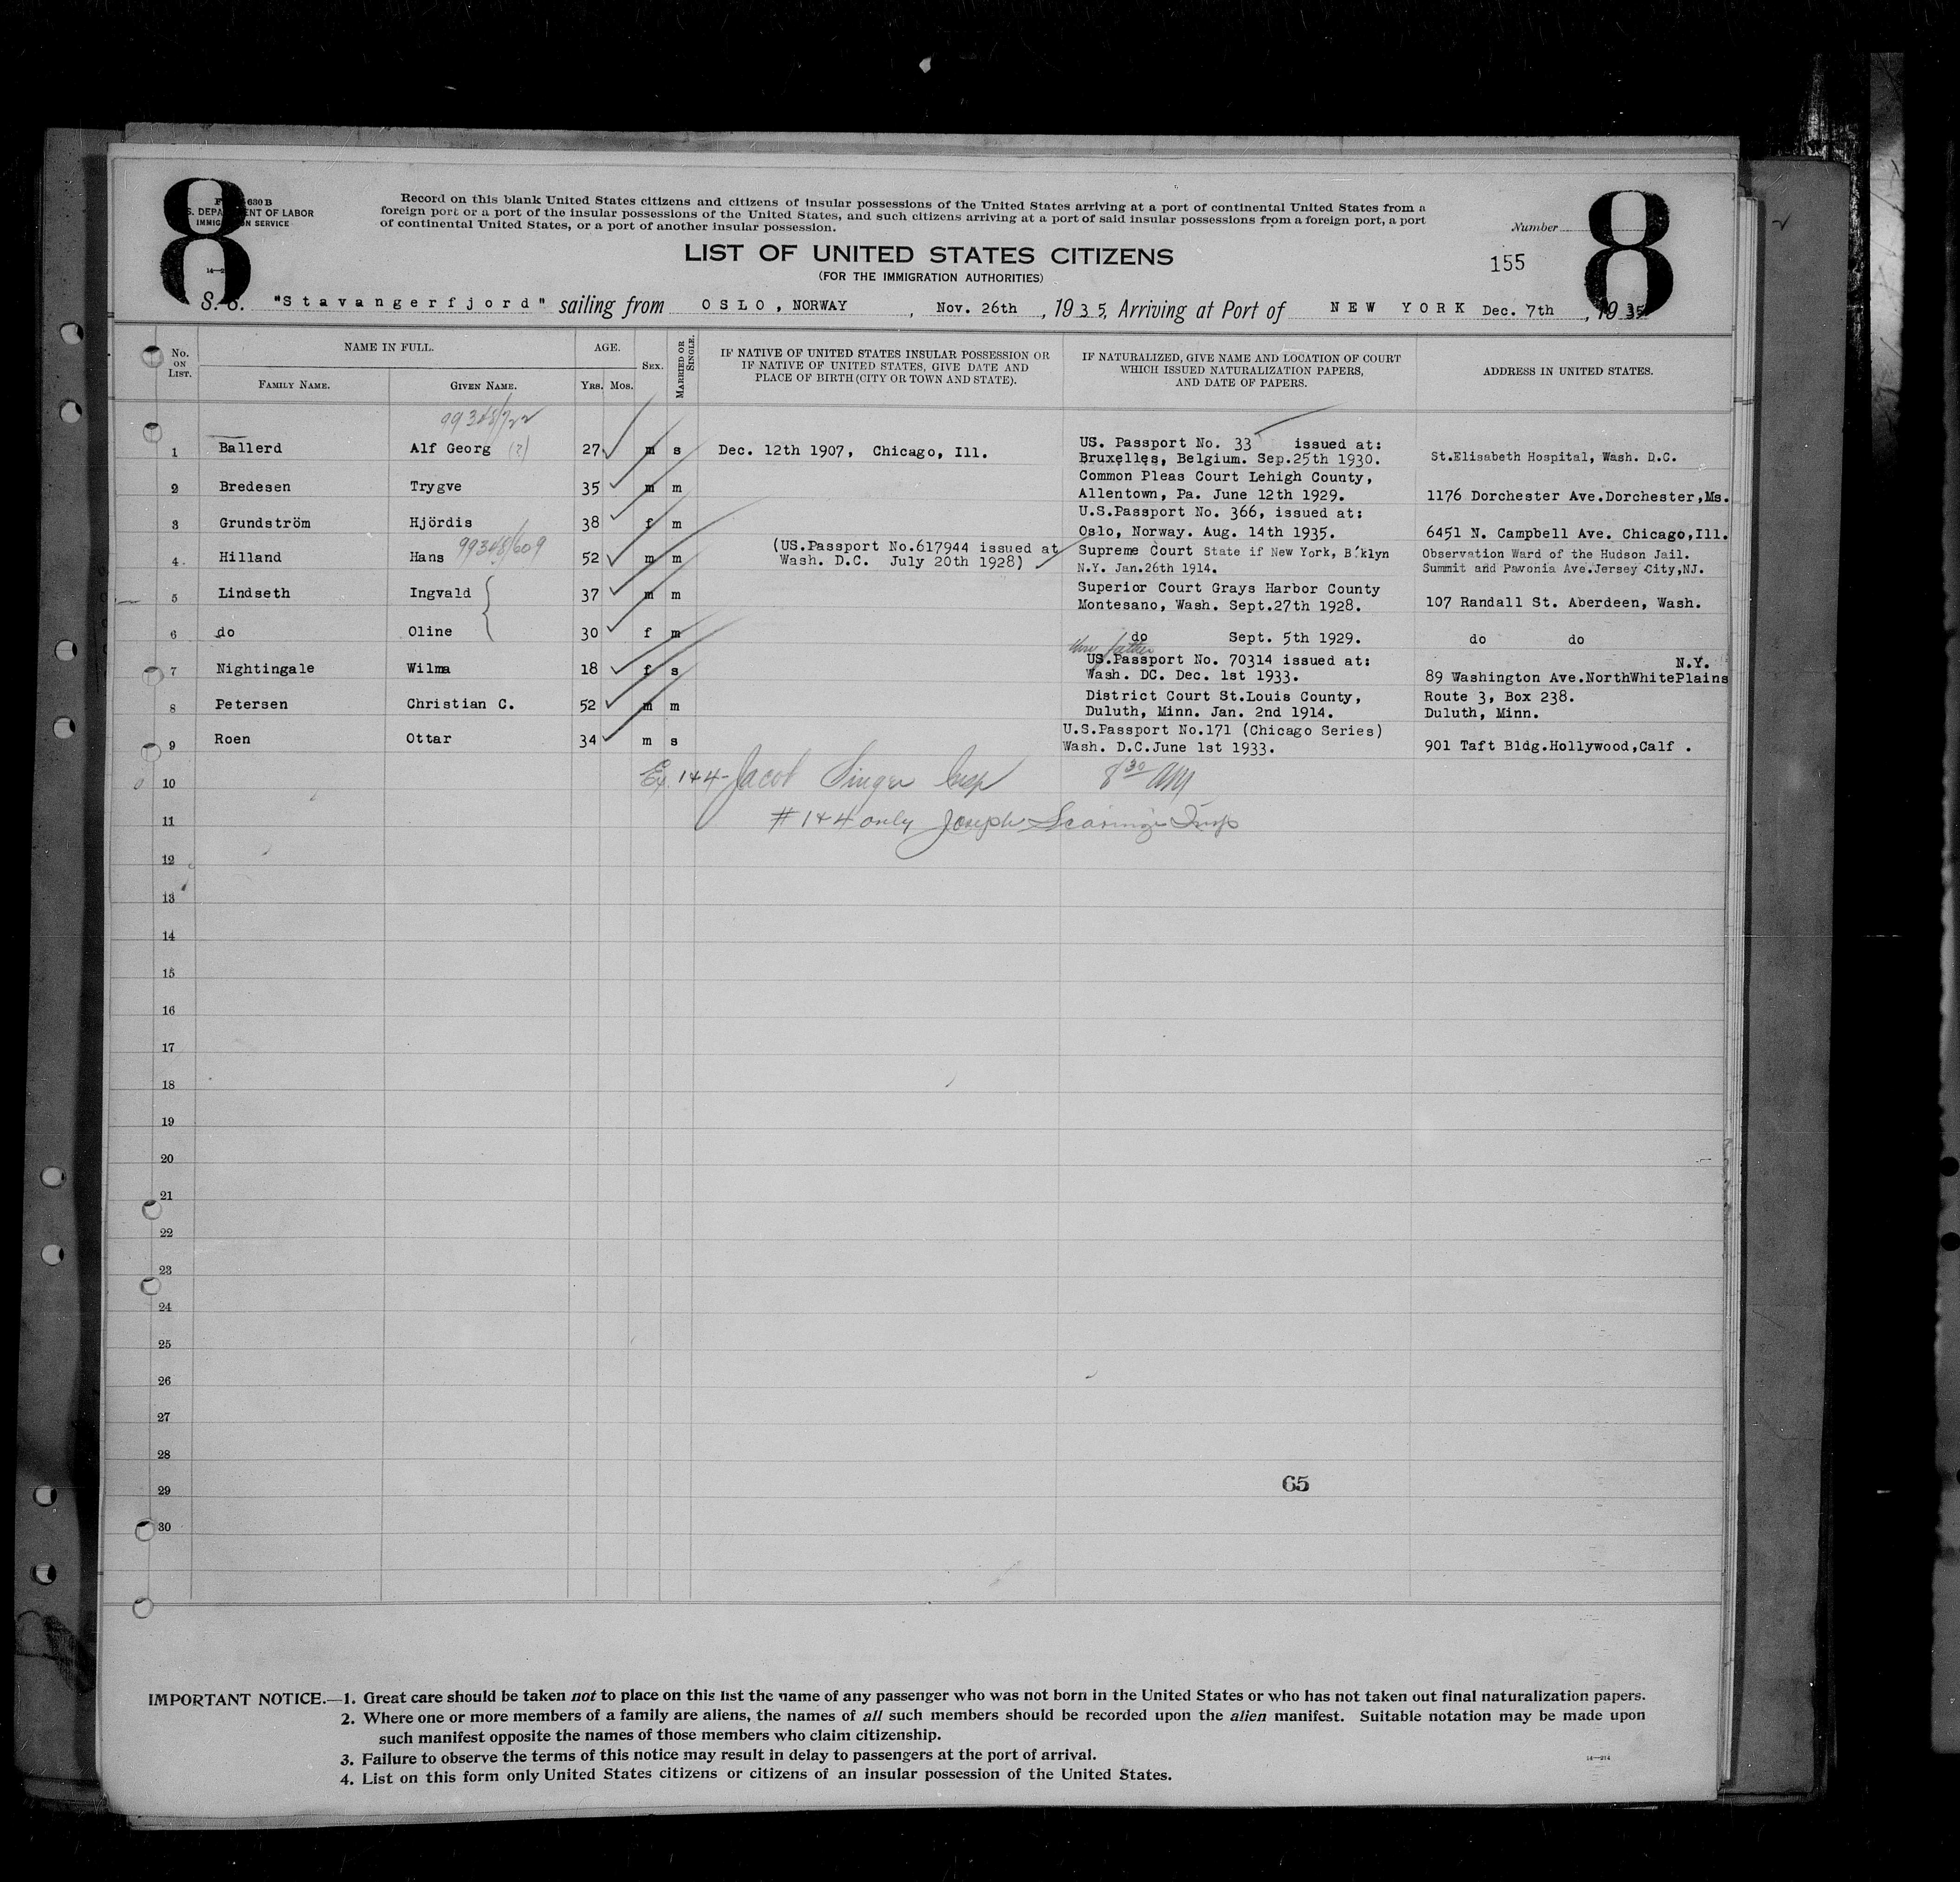 8
8
630 B
S. DEPARTMENT OF LABOR
IMMIGRATION SERVICE
Record on this blank United States citizens and citizens of insular possessions of the United States arriving at a port of continental United States from a
foreign port or a port of the insular possessions of the United States, and such citizens arriving at a port of said insular possessions from a foreign port, a port
of continental United States, or a port of another insular possession.
Number
LIST OF UNITED STATES CITIZENS
155
(FOR THE IMMIGRATION AUTHORITIES)
S. S. "Stavangerfjord" sailing from OSLO, NORWAY, Nov. 26th, 1935, Arriving at Port of NEW YORK Dec. 7th, 1935
No. ON LIST.
NAME IN FULL.
FAMILY NAME. GIVEN NAME.
AGE.
YRS. MOS.
SEX.
MARRIED OR SINGLE.
IF NATIVE OF UNITED STATES INSULAR POSSESSION OR
IF NATIVE OF UNITED STATES, GIVE DATE AND
PLACE OF BIRTH (CITY OR TOWN AND STATE).
IF NATURALIZED, GIVE NAME AND LOCATION OF COURT
WHICH ISSUED NATURALIZATION PAPERS,
AND DATE OF PAPERS.
ADDRESS IN UNITED STATES.
99348/722
1 Ballerd Alf Georg (?) 27 m s Dec. 12th 1907, Chicago, Ill. US. Passport No. 33 issued at:
Bruxelles, Belgium. Sep.25th 1930. St.Elisabeth Hospital, Wash. D.C.
2 Bredesen Trygve 35 m m Common Pleas Court Lehigh County,
Allentown, Pa. June 12th 1929. 1176 Dorchester Ave.Dorchester,Ms.
3 Grundström Hjördis 38 f m U.S.Passport No. 366, issued at:
Oslo, Norway. Aug. 14th 1935. 6451 N. Campbell Ave. Chicago,Ill.
4 Hilland Hans 99348/609 52 m m (US.Passport No.617944 issued at
Wash. D.C. July 20th 1928) Supreme Court State if New York, B'klyn
N.Y. Jan.26th 1914. Observation Ward of the Hudson Jail.
Summit and Pavonia Ave.Jersey City,NJ.
5 Lindseth Ingvald 37 m m Superior Court Grays Harbor County
Montesano, Wash. Sept.27th 1928. 107 Randall St. Aberdeen, Wash.
6 do Oline 30 f m do Sept. 5th 1929. do do
thru father
7 Nightingale Wilma 18 f s US.Passport No. 70314 issued at:
Wash. DC. Dec. 1st 1933. N.Y.
89 Washington Ave.NorthWhitePlains
8 Petersen Christian C. 52 m m District Court St.Louis County,
Duluth, Minn. Jan. 2nd 1914. Route 3, Box 238.
Duluth, Minn.
9 Roen Ottar 34 m s U.S.Passport No.171 (Chicago Series)
Wash. D.C.June 1st 1933. 901 Taft Bldg.Hollywood,Calf .
10 Ex 1+4- Jacob Singer Insp 8 30 AM
11 # 1+4 only Joseph Insp
12
13
14
15
16
17
18
19
20
21
22
23
24
25
26
27
28
29
30
65
IMPORTANT NOTICE.—1. Great care should be taken not to place on this list the name of any passenger who was not born in the United States or who has not taken out final naturalization papers.
2. Where one or more members of a family are aliens, the names of all such members should be recorded upon the alien manifest. Suitable notation may be made upon
such manifest opposite the names of those members who claim citizenship.
3. Failure to observe the terms of this notice may result in delay to passengers at the port of arrival.
4. List on this form only United States citizens or citizens of an insular possession of the United States.
14—214